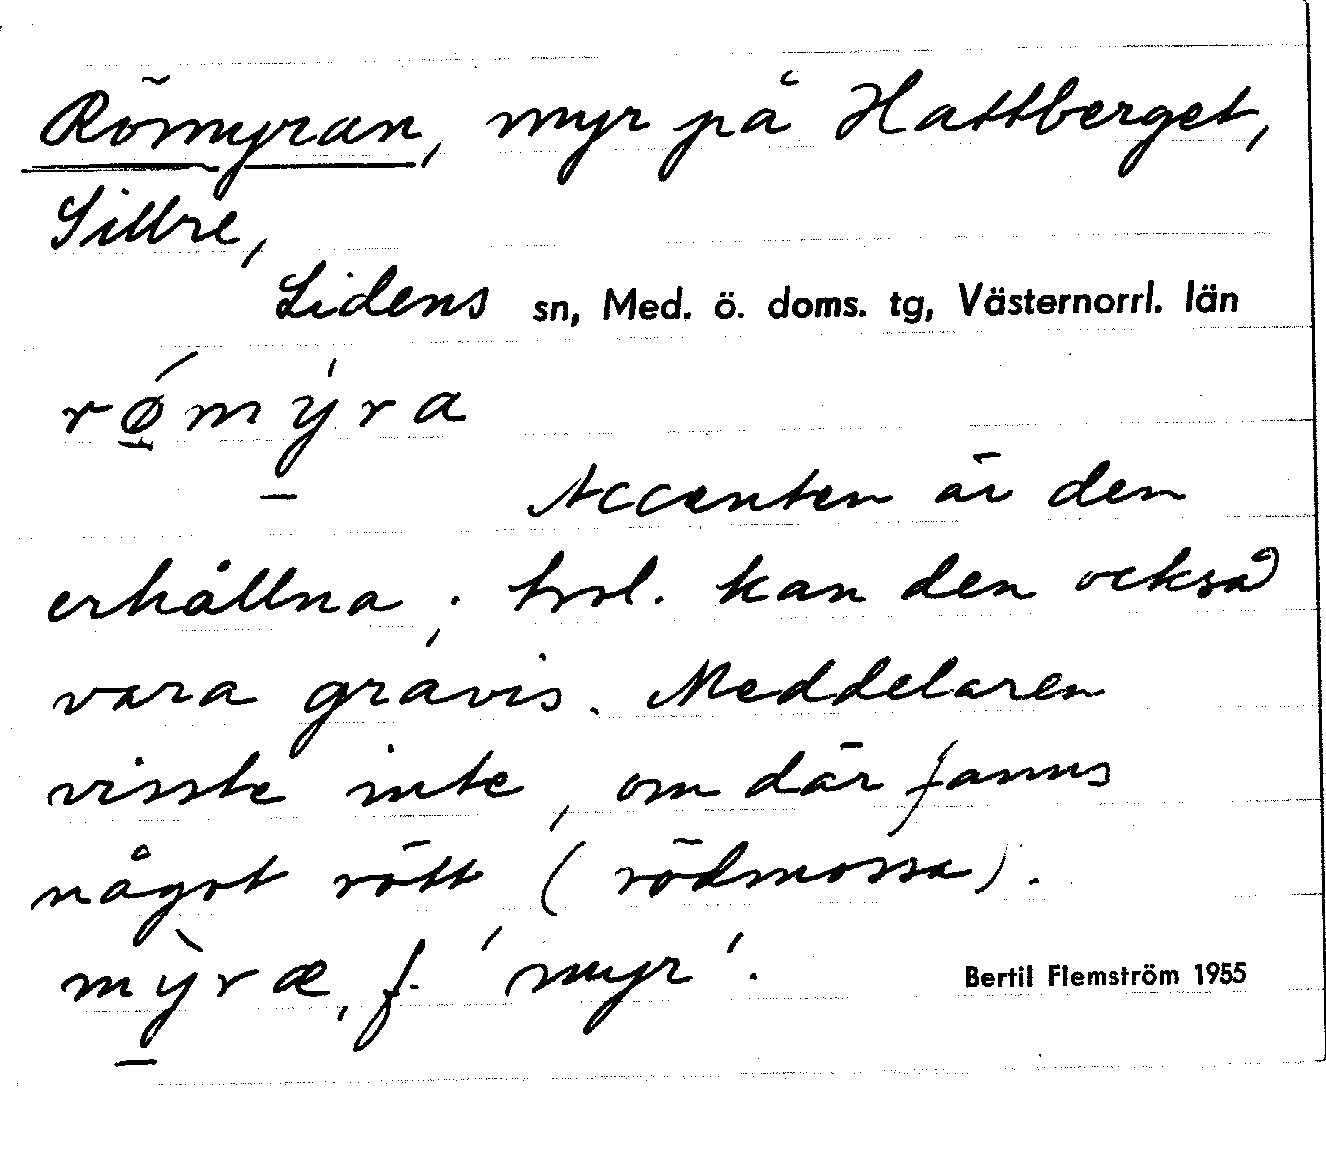 Römyran, myr på Hattberget,
Sillre,
Lidens sn, Med. ö. doms. tg, Västernorrl. län
rǿ̱mý̱ra
Accenten är den
erhållna; trol. kan den också
vara gravis. Meddelaren
visste inte, om där fanns
något rött (rödmossa).
mỳ̱ræ, f. 'myr'.
Bertil Flemström 1955